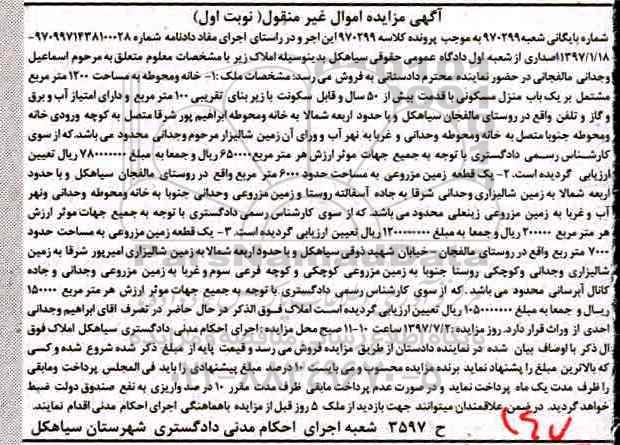 آگهی مزایده اموال غیر منقول( نوبت اول)
شماره بایگانی شعبه۹۷۰۲۹۹ به موجب پرونده کلاسه ۹۷۰۲۹۹ این اجرو در راستای اجرای مفاد دادنامه شماره ۹۷۰۹۹۷۱۴۳۸۱۰۰۰۲۸-
۱۳۹۷/۱/۱۸صداری از شعبه اول دادگاه عمومی حقوقی سیاهکل بدینوسیله املاک زیر با مشخصات معلوم متعلق به مرحوم اسماعیل
وجدانی مالفجانی در حضور نماینده محترم دادستانی به فروش می رسد: مشخصات ملک :۱- خانه ومحوطه به مساحت ۱۲۰۰ متر مربع
مشتمل بر یک باب منزل مسکونی با قدمت بیش از ۵۰ سال و قابل سکونت با زیر بنای تقریبی ۱۰۰ متر مربع و دارای امتیاز آب و برق
و گاز و تلفن واقع در روستای مالفجان سیاهکل و با حدود اربعه شمالا به خانه ومحوطه ابراهیم پور شرقا متصل به کوچه ورودی خانه
ومحوطه جنوبا متصل به خانه ومحوطه وجدانی و غربا به نهر آب و ورای آن زمین شالیزار مرحوم وجدانی محدود می باشد.که از سوی
کارشناس رسمی دادگستری با توجه به جمیع جهات موثر ارزش هر متر مربع۶۵۰۰۰۰ ریال و جمعا به مبلغ ۷۸۰۰۰۰۰۰۰ ریال تعیین
ارزیابی گردیده است. ۲- یک قطعه زمین مزروعی به مساحت حدود ۶۰۰۰ متر مربع واقع در روستای مالفجان سیاهکل و با حدود
اربعه شمالا به زمین شالیزاری وجدانی شرقا به جاده آسفالته روستا و زمین مزروعی وجدانی جنوبا به خانه ومحوطه وجدانی ونهر
آب و غربا به زمین مزروعی زینعلی محدود می باشد که از سوی کارشناس رسمی دادگستری با توجه به جمیع جهات موثر ارزش
هر متر مربع ۲۰۰۰۰۰ ریال و جمعا به مبلغ ۱۲۰۰۰۰۰۰۰۰ ریال تعیین ارزیابی گردیده است. ۳- یک قطعه زمین مزروعی به مساحت حدود
۷۰۰۰ متر ربع واقع در روستای مالفجان -خیابان شهید ذوقی سیاهکل و با حدود اربعه شمالا به زمین شالیزاری امیرپور شرقا به زمین
شالیزاری وجدانی وکوچکی روستا جنوبا به زمین مزروعی کوچکی و کوچه فرعی سوم و غربا به زمین مزروعی وجدانی و جاده
کانال آبرسانی محدود می باشد .که از سوی کارشناس رسمی دادگستری با توجه به جمیع جهات موثر ارزش هر متر مربع ۱۵۰۰۰۰
ریال و جمعا به مبلغ ۱۰۵۰۰۰۰۰۰۰ ریال تعیین ارزیابی گردیده است املاک فوق الذکر در حال حاضر در تصرف اقای ابراهیم وجدانی
احدی از وراث قرار دارد. روز مزایده :۱۳۹۷/۷/۲ ساعت ۱۰-۱۱ صبح محل مزایده : اجرای احکام مدنی دادگستری سیاهکل املاک فوق
ال ذکر با اوصاف بیان شده در نماینده دادستان از طریق مزایده فروش می رسد و قیمت پایه از مبلغ ذکر شده شروع شده وکسی
که بالاترین مبلغ را پشنهاد نماید برنده مزایده محسوب و می بایست ۱۰ درصد مبلغ پیشنهادی را باید فی المجلس پرداخت ومابقی
را ظرف مدت یک ماه پرداخت نماید و در صورت عدم پرداخت مابقی ظرف مدت مقرر ۱۰ درصد واریزی به نفع صندوق دولت ضبط
خواهد گردید. در ضمن علاقمندان میتوانند جهت بازدید از ملک ۵ روز قبل از مزایده باهماهنگی اجرای احکام مدنی اقدام نمایند.
ح ۳۵۹۷ شعبه اجرای احکام مدنی دادگستری شهرستان سیاهکل